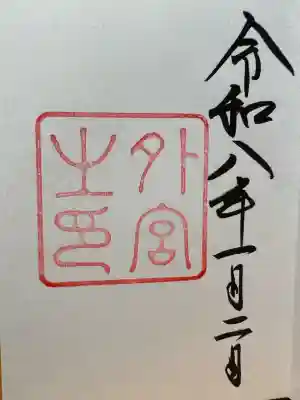 令和八年一月二日
外宮
之印